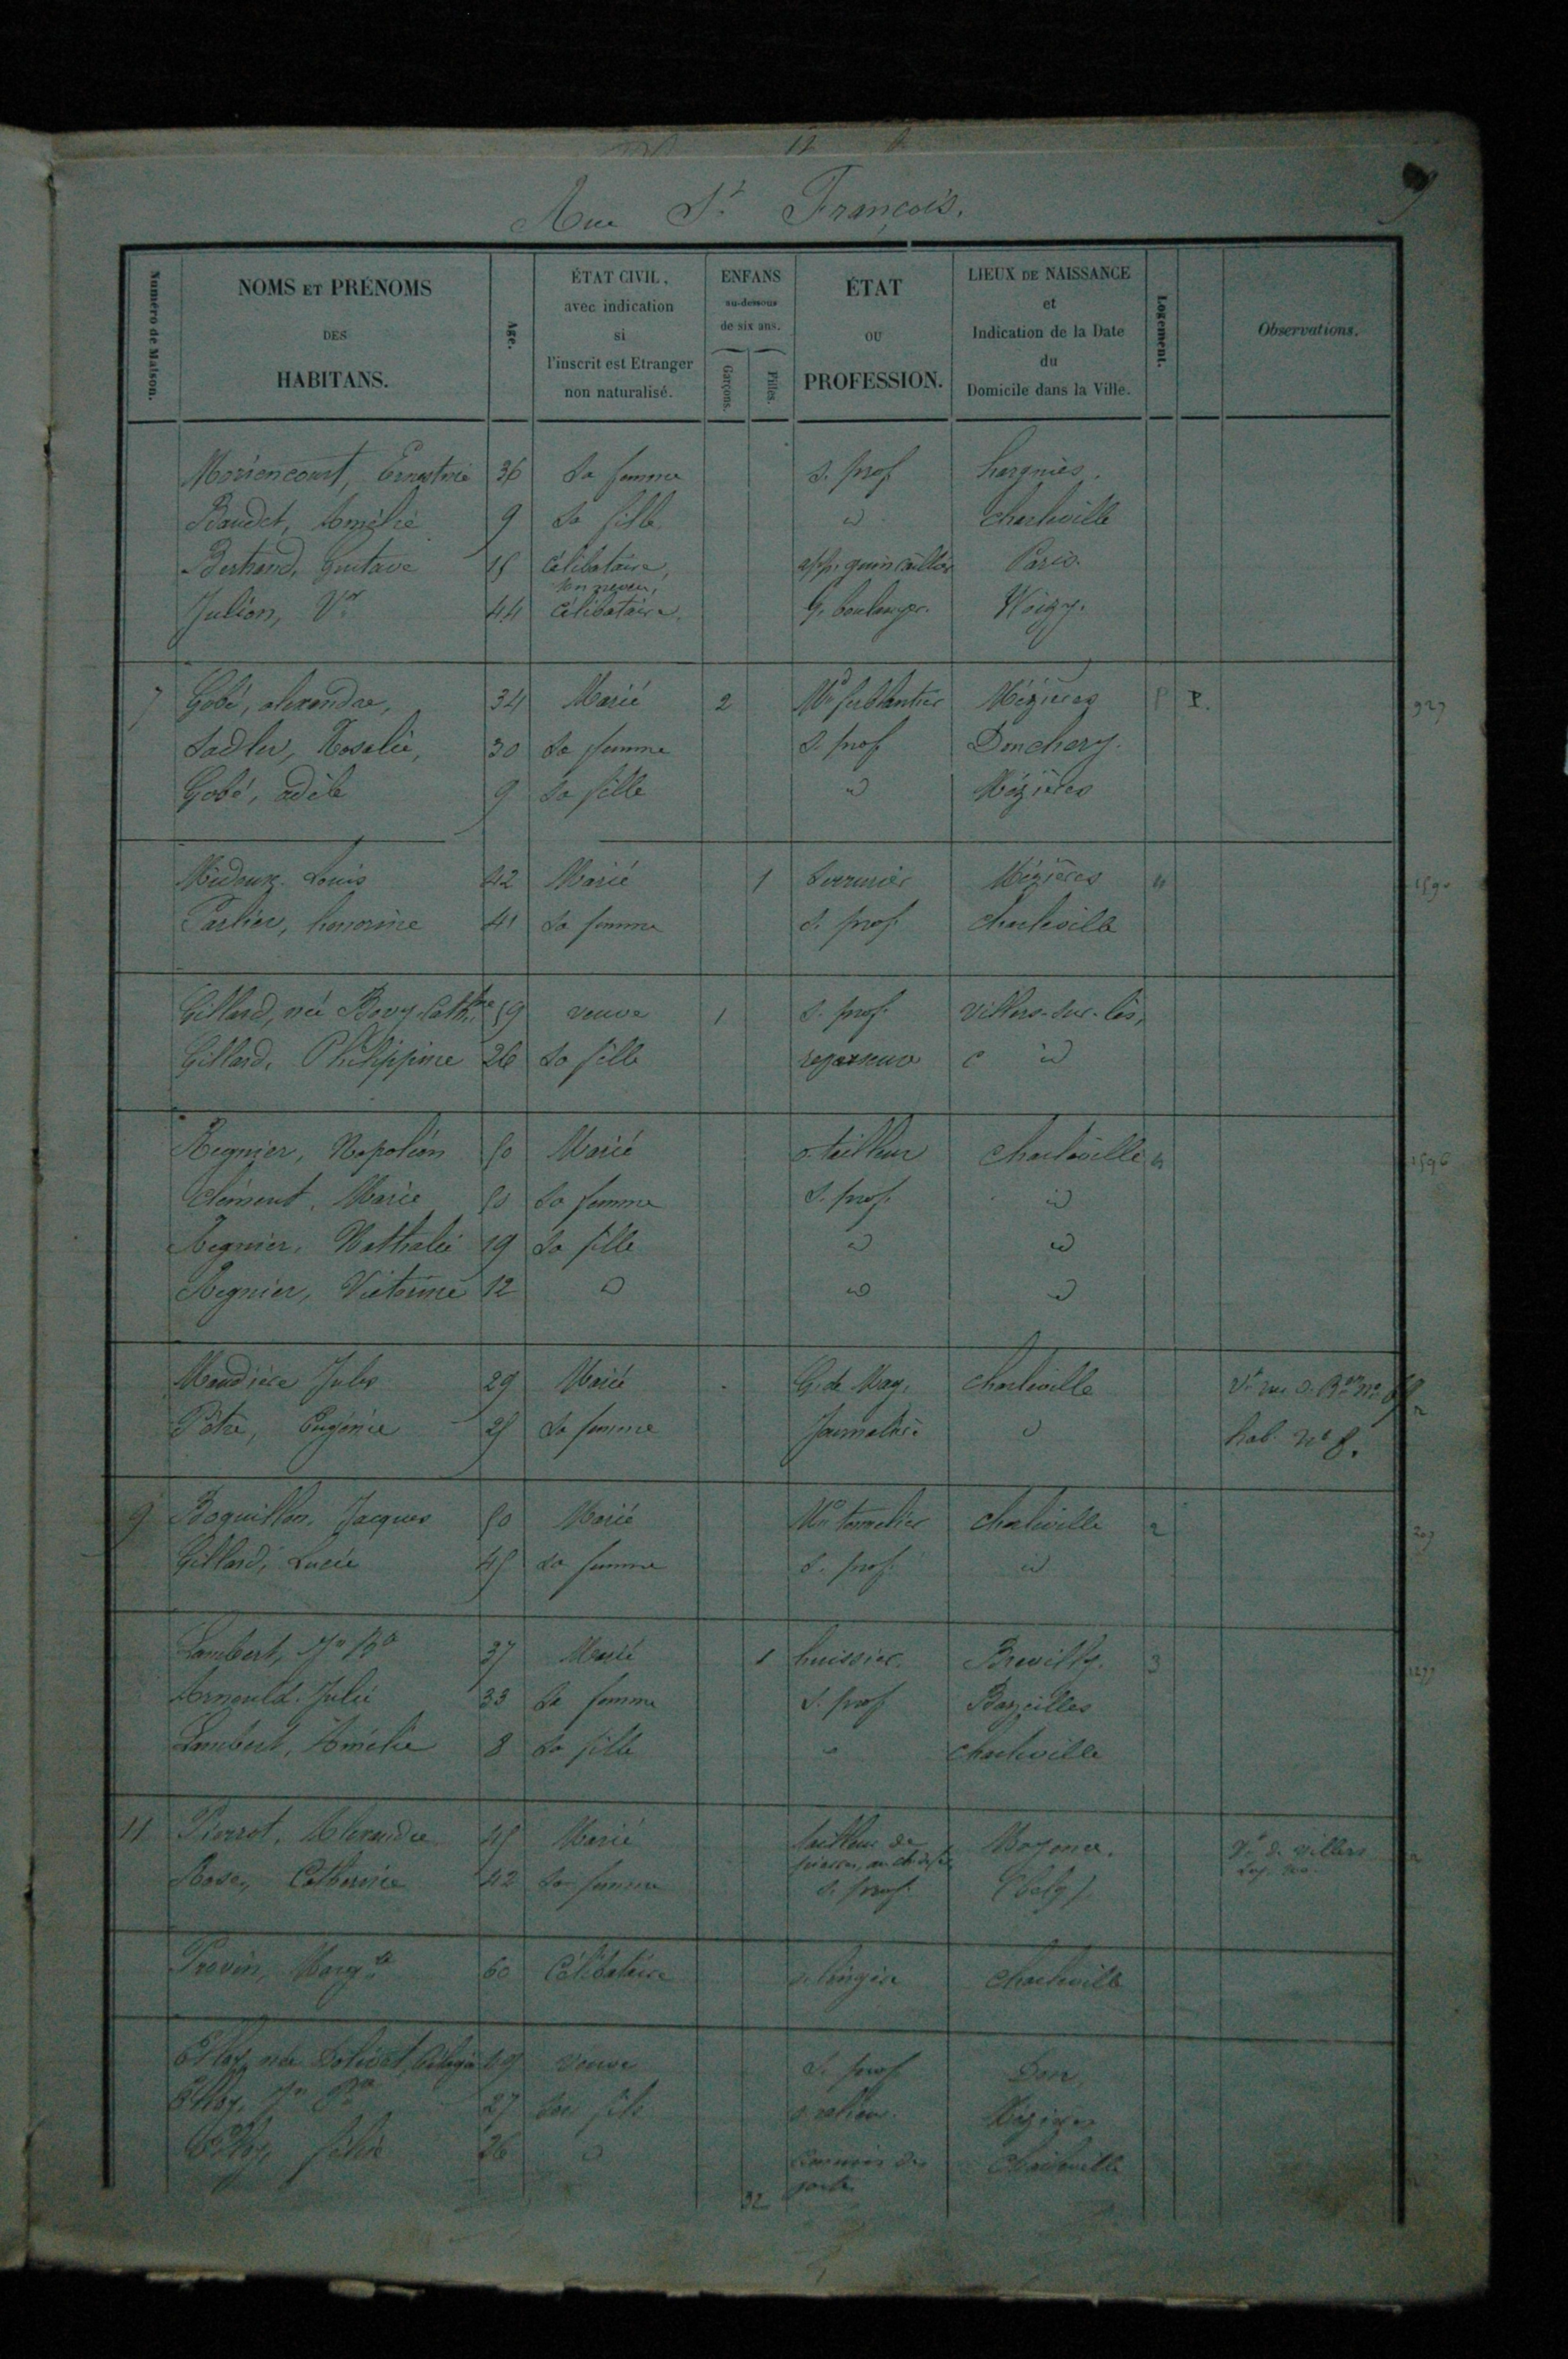 12
9
Rue St François.
Numéro de Maison.
NOMS ET PRÉNOMS
DES
HABITANS.
Age.
ÉTAT CIVIL,
avec indication
si
l'inscrit est Etranger
non naturalisé.
ENFANS
au-dessous
de six ans.
Garçons.
Filles.
ÉTAT
OU
PROFESSION.
LIEUX DE NAISSANCE
et
Indication de la Date
du
Domicile dans la Ville.
Logement.
Observations.
Moriencourt, Ernestine 36 Sa femme S. prof hargnies.
Baudet, Amélie 9 Sa fille id Charleville
Bertrand, Gustave 15 Célibataire, app. quincaillier Paris.
son neveu,
Julion, Vor 44 Célibataire. G. boulanger.
7 Gobé, alexandre, 34 Marié 2 Md ferblantier Mézières P P. 927
Sadler, Rosalie, 30 Sa femme S. prof Donchery.
Gobé, adèle 9 Sa fille id Mézières
Midoux Louis 42 Marié 1 Serrurier Mézières 1590
Parlier, honorine 41 Sa femme S. prof. Charleville
Gillard, née Bovy Cathne 59 veuve 1 S. prof.
Gillard, Philippine 26 Sa fille id
Regnier, Napoléon 50 Marié o. tailleur Charleville 1596
Clément, Marie 50 Sa femme S. prof. id
Regnier, Nathalie 19 Sa fille id id
Regnier, Victorine 12 id id id
Maudière Jules 29 Marié G. de Mag. Charleville
Pâtre, Eugénie 25 Sa femme Journalière id hab. No 8.
9 Boquillon, Jacques 50 Marié Md tonnelier Charleville 2 207
Gillard, Lucie 45 Sa femme S. prof. id
Lambert, Jn Bte 37 Marié 1 huissier. Brevilly. 3 1277
Arnould, Julie 33 Sa femme S. prof Bazeilles
Lambert, Amélie 8 Sa fille Charleville
11 Pierrot, Alexandre 45 Marié tailleur de
Rose, Catherine 42 Sa femme S. prof. (belg)
Provin, Margte 60 Célibataire o. lingère Charleville
veuve S. prof
27 Son fils o. relieur. Mézières
26 id Charleville
32